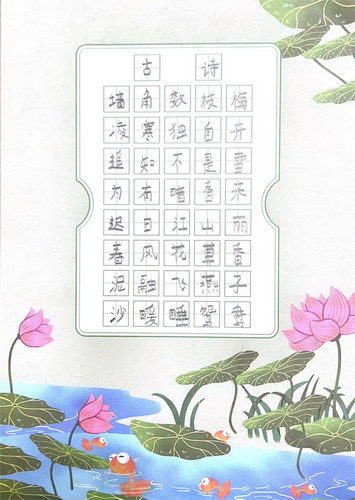 古诗
墙角数枝梅
凌寒独自开
遥知不是雪
为有暗香来
迟日江山丽
春风花草香
泥融飞燕子
沙暖睡鸳鸯